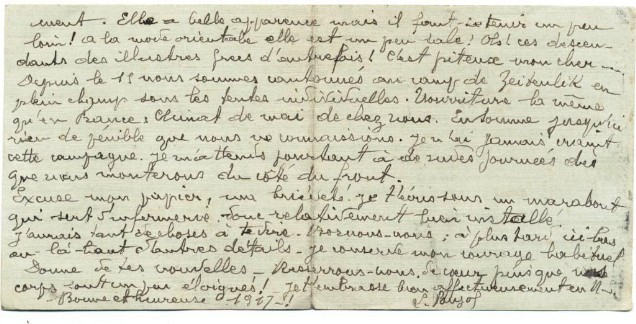 ment. Elle a belle apparence mais il faut se tenir un peu
loin! a la mode orientale elle est un peu sale! Oh! ces descen-
dants des illustres grecs d'autrefois! C'est piteux mon cher —
Depuis le 11 nous sommes cantonnés au camp de Zeitenlik en
plein champ sous les tentes individuelles. Nourriture la même
qu'en France: Climat de mai de chez nous. En somme jusqu'ici
rien de pénible que nous ne connaissions. Je n'ai jamais craint
cette campagne. Je m'attends pourtant à de rudes journées dès
que nous monterons du côté du front.
Excuse mon papier, une Je t'écris sous un marabout
qui sert d'infirmerie, donc relativement bien installé.
J'aurais tant de choses à te dire. nous-nous, à plus tard, ici-bas
ou là-haut d'autres détails — Je conserve mon courage habituel
Donne de tes nouvelles — nous. de cœur puisque nos
corps sont un peu éloignés! Je t'embrasse bien affectueusement en N.
Bonne et heureuse 1917 —!